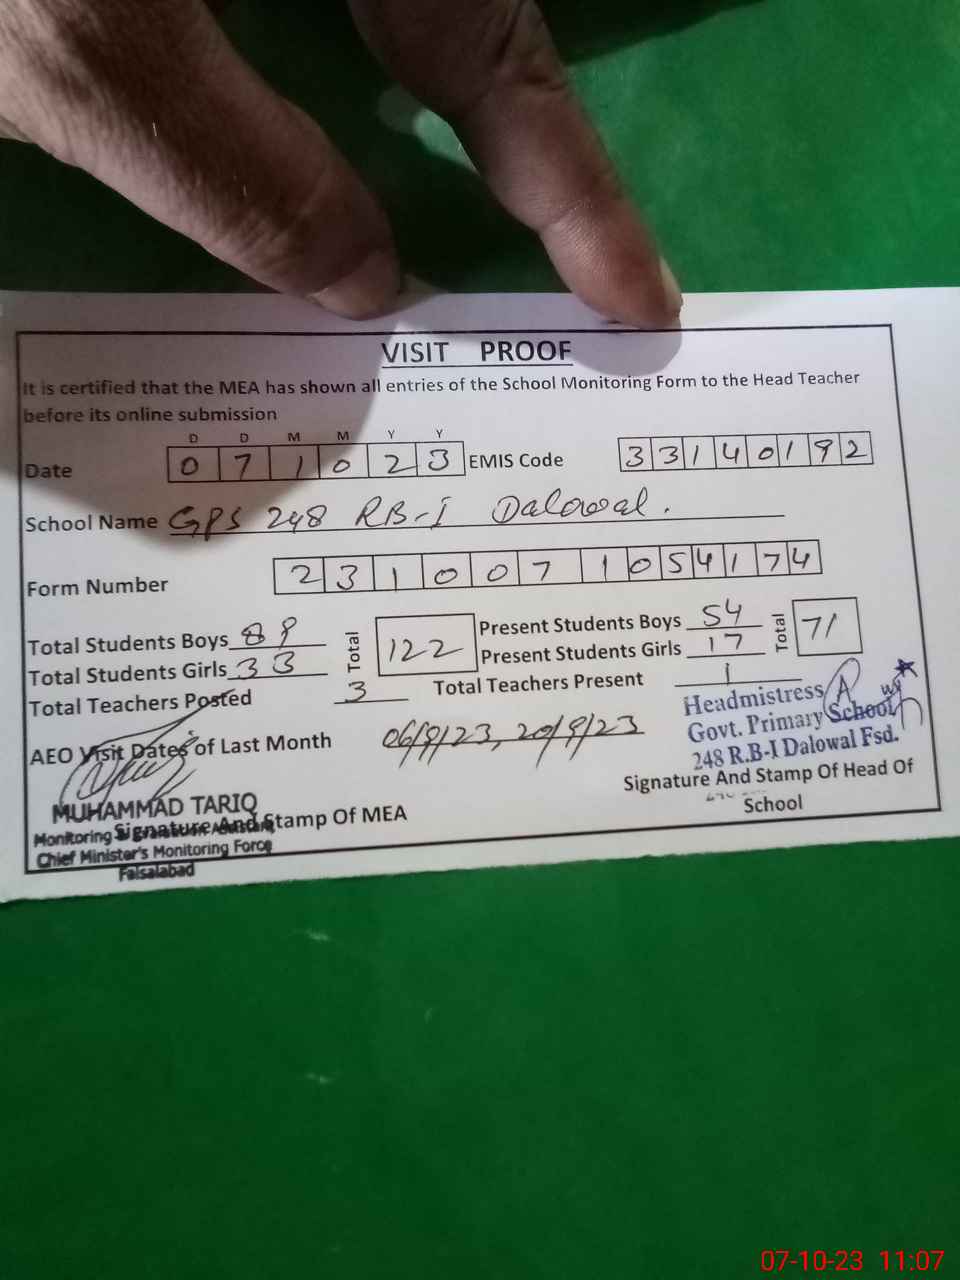 VISIT PROOF
It is certified that the MEA has shown all entries of the School Monitoring Form to the Head Teacher
before its online submission
D D M M Y Y
Date 0 7 1 0 2 3 EMIS Code 3 3 1 4 0 1 9 2
School Name GPS 248 RB-I Dalowal.
Form Number 2 3 1 0 0 7 1 0 5 4 1 7 4
Total Students Boys 89 Total 122 Present Students Boys 54 Total 71
Total Students Girls 33 Present Students Girls 17
Total Teachers Posted 3 Total Teachers Present 1
Headmistress
Govt. Primary School
248 R.B-I Dalowal Fsd.
AEO Visit Dates of Last Month 06/9/23, 20/9/23
Signature And Stamp Of Head Of
School
MUHAMMAD TARIQ
Signature And Stamp Of MEA
Monitoring & Evaluation Assistant
Chief Minister's Monitoring Force
Faisalabad
07-10-23 11:07